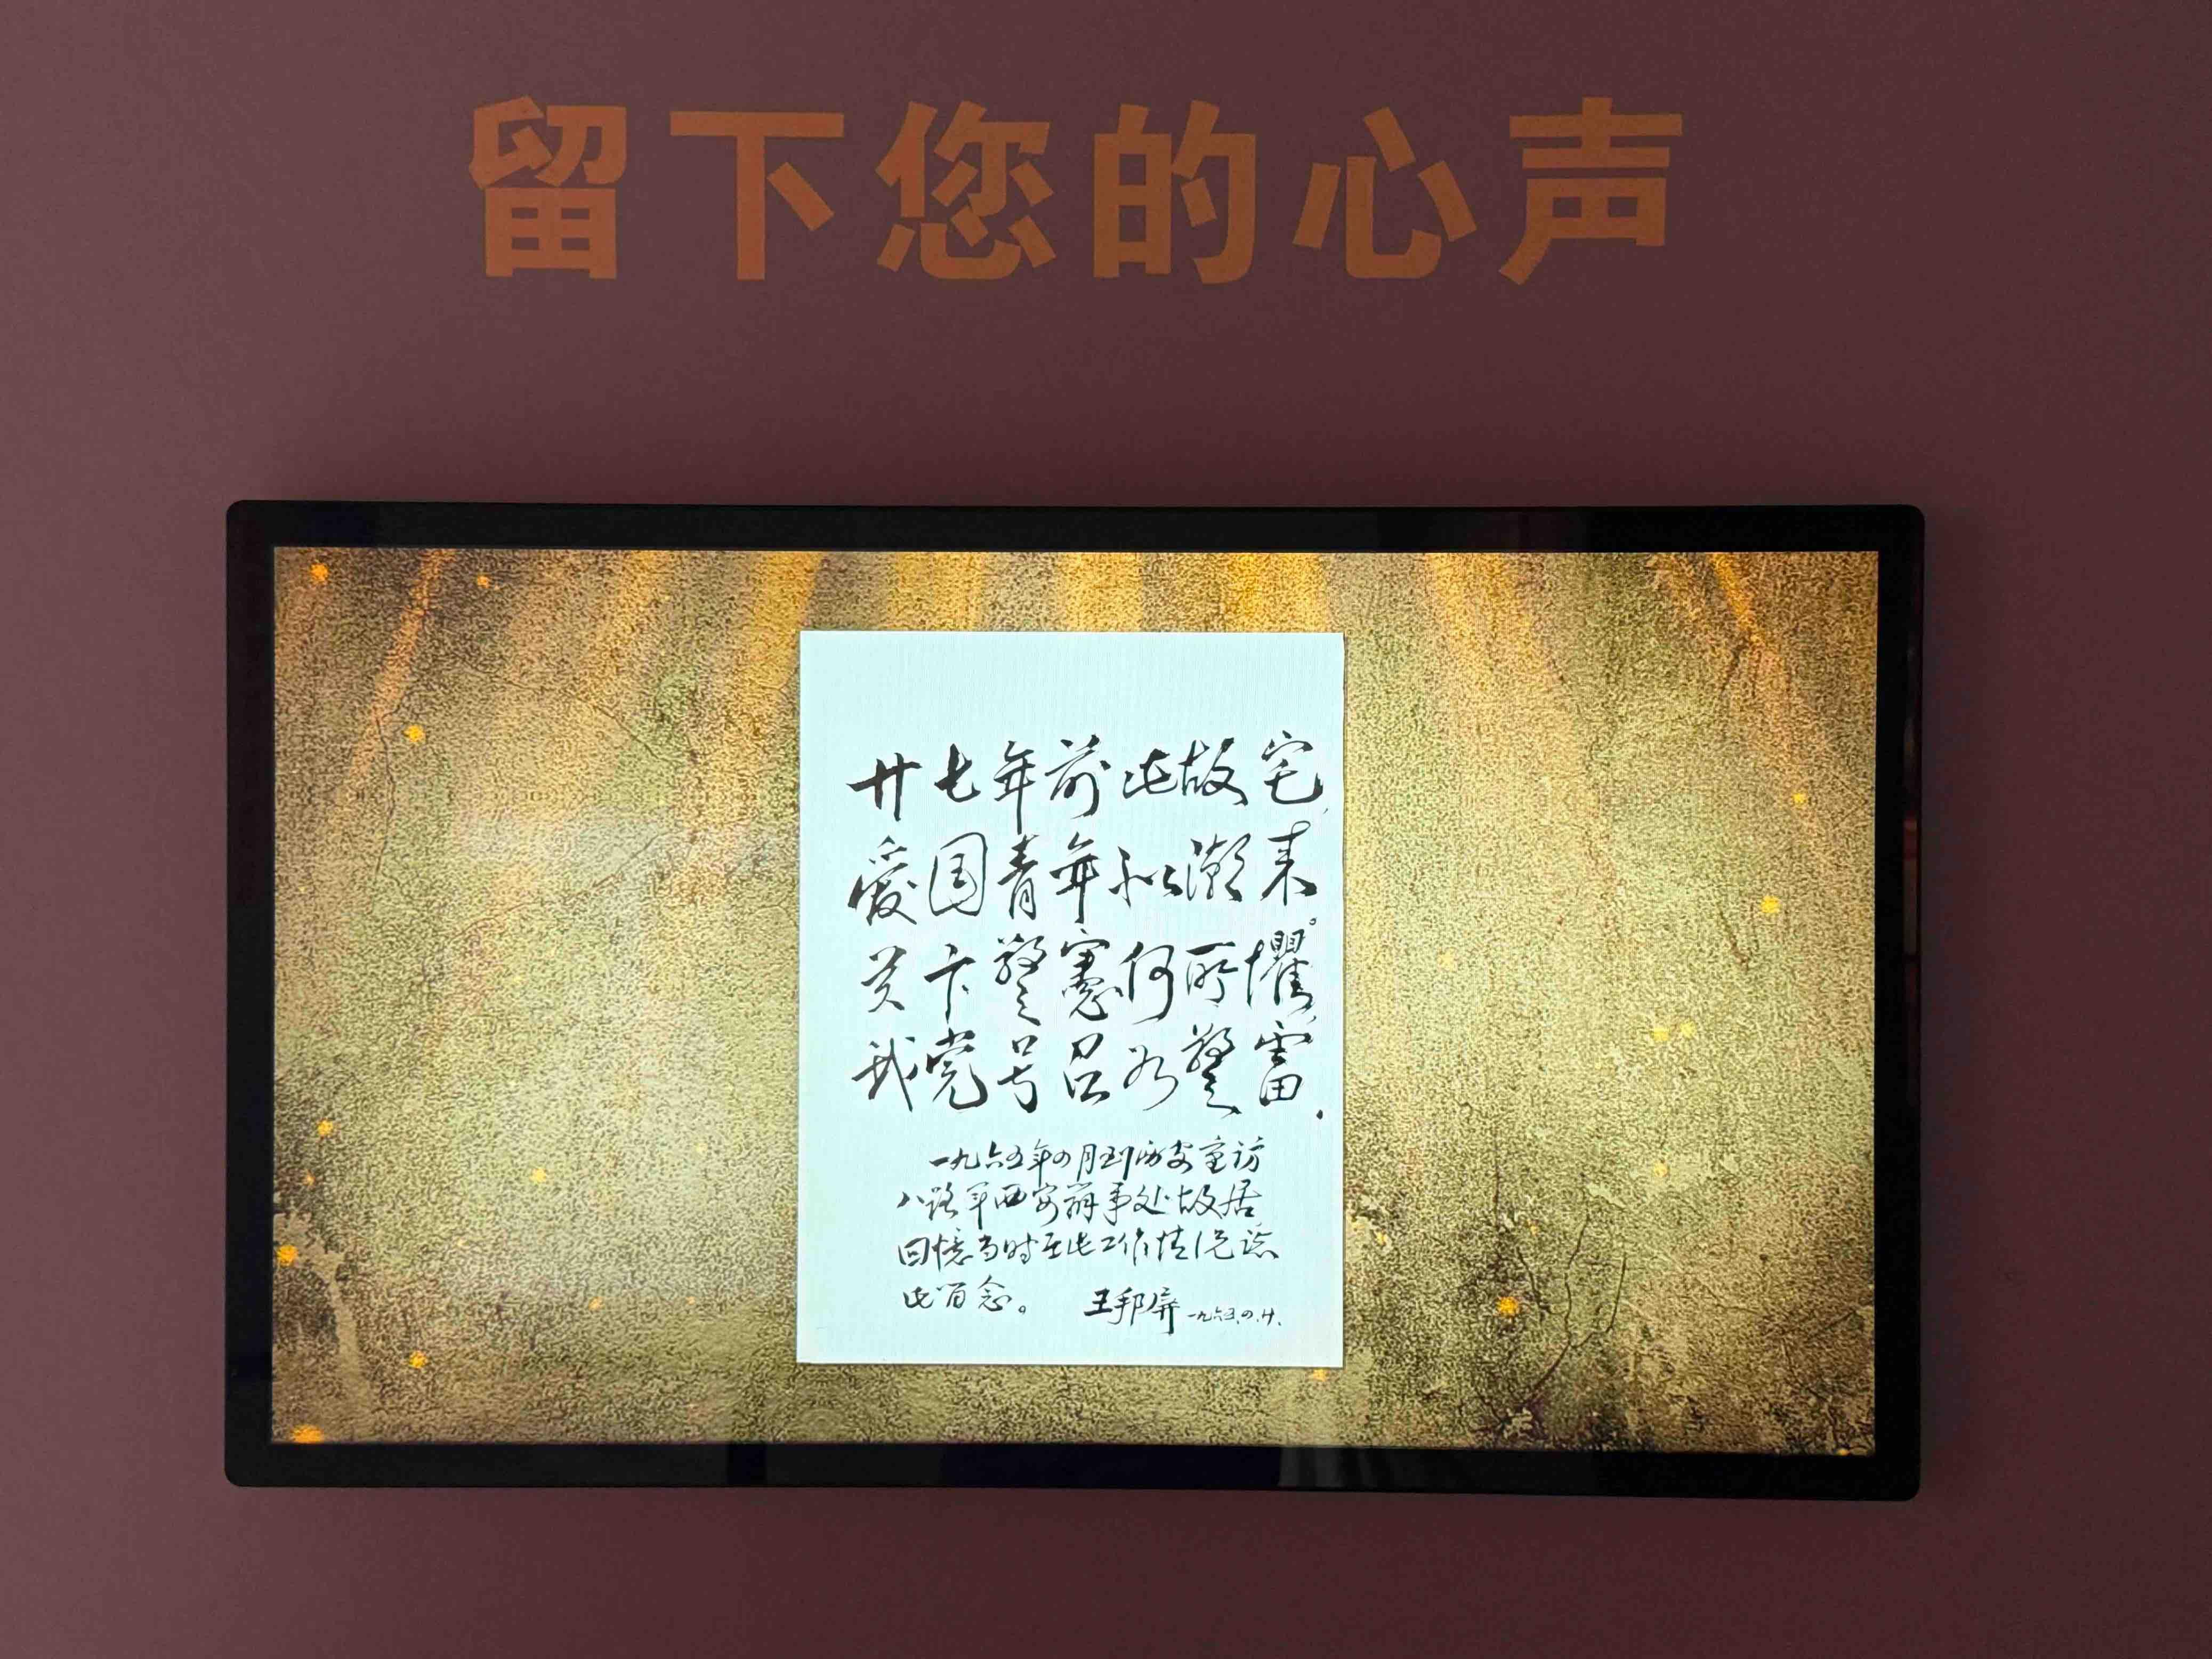 留下您的心声
廿七年前此故宅,
爱国青年似潮来。
关卡警宪何所惧,
我党号召如警雷.
一九六五年四月到西安重访
八路军西安办事处故居
回憶当时在此工作情况誌
此留念。 王邦屏 一九六五.四.廿.